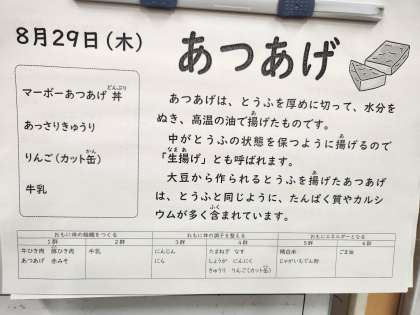 8月29日(木)
あつあげ
マーボーあつあげ丼
どんぶり
あっさりきゅうり
りんご(カット缶)
かん
牛乳
あつあげは、とうふを厚めに切って、水分を
ぬき、高温の油で揚げたものです。
あ
中がとうふの状態を保つように揚げるので
あ
「生揚げ」とも呼ばれます。
なまあ
大豆から作られるとうふを揚げたあつあげ
あ
は、とうふと同じように、たんぱく質やカルシ
ウムが多く含まれています。
ふく
おもに体の組織をつくる
おもに体の調子を整える
おもにエネルギーとなる
1群 2群 3群 4群 5群 6群
牛ひき肉 豚ひき肉 牛乳 にんじん たまねぎ なす 精白米 ごま油
あつあげ 赤みそ にら しょうが にんにく じゃがいもでん粉
きゅうり りんご(カット缶)